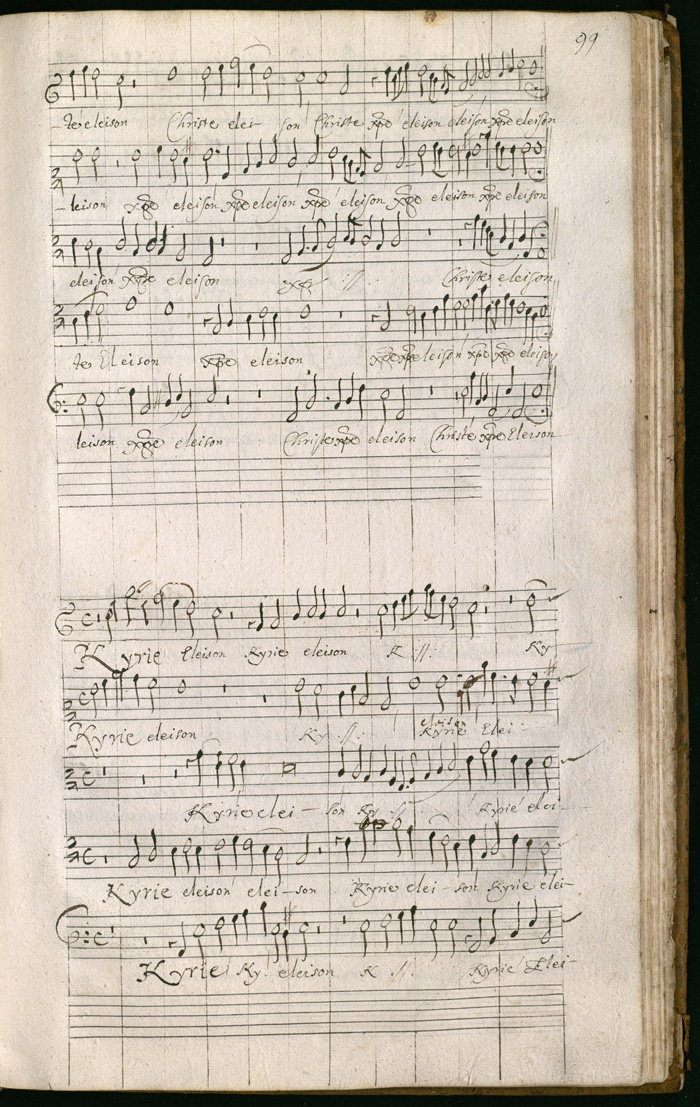 99
-te eleison Christe elei- son Christe xpe eleison eleison xpe eleison
-leison xpe eleison xpe eleison xpe eleison xpe eleison xpe eleison
eleison xpe eleison xpe :||: Christe eleison
te Eleison xpe eleison xpe xpe eleison xpe xpe eleison
leison xpe eleison Christe xpe eleison Christe xpe Eleison
Kyrie Eleison Kyrie eleison K :||: Ky
eleison
Kyrie eleison Ky :||: Kyrie Elei-
Kyrie elei- son Ky :||: Kyrie elei-
Kyrie eleison elei-son Kyrie elei-son Kyrie elei-
Kyrie Ky. eleison K :||: Kyrie Elei-